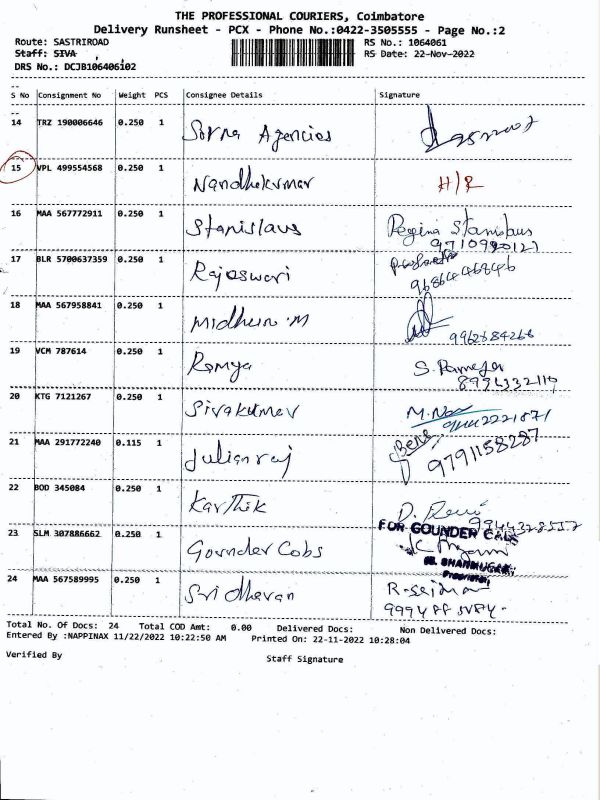 THE PROFESSIONAL COURIERS, Coimbatore
Delivery Runsheet - PCX - Phone No.:0422-3505555 - Page No.:2
Route: SASTRIROAD RS No.: 1064061
Staff: SIVA RS Date: 22-Nov-2022
DRS No.: DCJB106406102
S No Consignment No Weight PCS Consignee Details Signature
14 TRZ 190006646 0.250 1 Sorna Agencies
15 VPL 499554568 0.250 1 Nandhakumar H/R
16 MAA 567772911 0.250 1 Stanislaus Regina Stanislaus
17 BLR 5700637359 0.250 1 Rajaswari
9686446846
18 MAA 567958841 0.250 1 Midhun.M
19 VCM 787614 0.250 1 Romya S.
20 KTG 7121267 0.250 1 Sivakumar
21 MAA 291772240 0.115 1 Julianraj 9791158287
22 BOD 345084 0.250 1 Karthik D.
FOR GOUNDER CABS
23 SLM 307886662 0.250 1 Gounder Cobs
24 MAA 567589995 0.250 1 Sridharan
Total No. Of Docs: 24 Total COD Amt: 0.00 Delivered Docs: Non Delivered Docs:
Entered By :NAPPINAX 11/22/2022 10:22:50 AM Printed On: 22-11-2022 10:28:04
Verified By Staff Signature